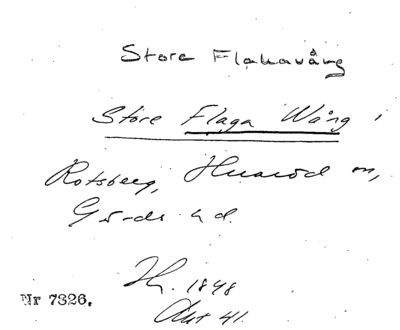 Store Flakavång
Store Flaga Wång i
Rotsberg, Huaröd sn,
Gärds hd.
Hy. 1848
Akt 41.
Nr 7326.